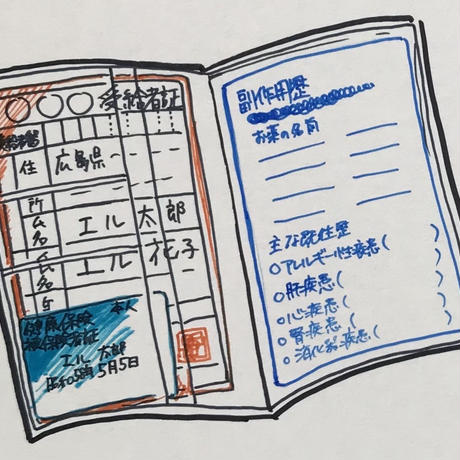 〇〇〇受給者証
住
広島県
所
氏名
エル 太郎
氏名
エル 花子
健康保険 本人
被保険者証
エル 太郎
5月5日
副作用歴
お薬の名前
主な既往歴
〇アレルギー性疾患( )
〇肝疾患( )
〇心疾患( )
〇腎疾患( )
〇消化器疾患( )